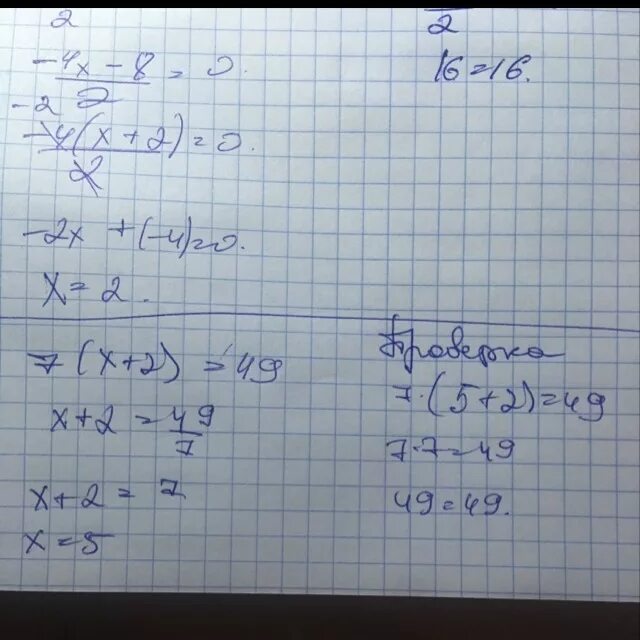 2
-4x-8/2 = 0.
-2
-4(x+2)/2 = 0.
-2x +(-4)=0.
x = 2.
2
16=16.
7 (x+2) = 49
x+2 = 49/7
x+2 = 7
x = 5
Проверка
7·(5+2)=49
7·7=49
49=49.